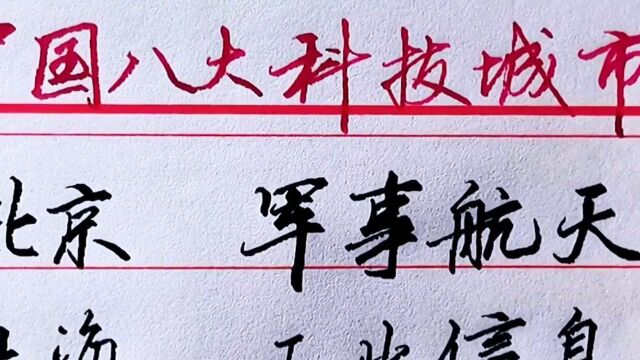 中国八大科技城市
北京 军事航天
上海 工业信息